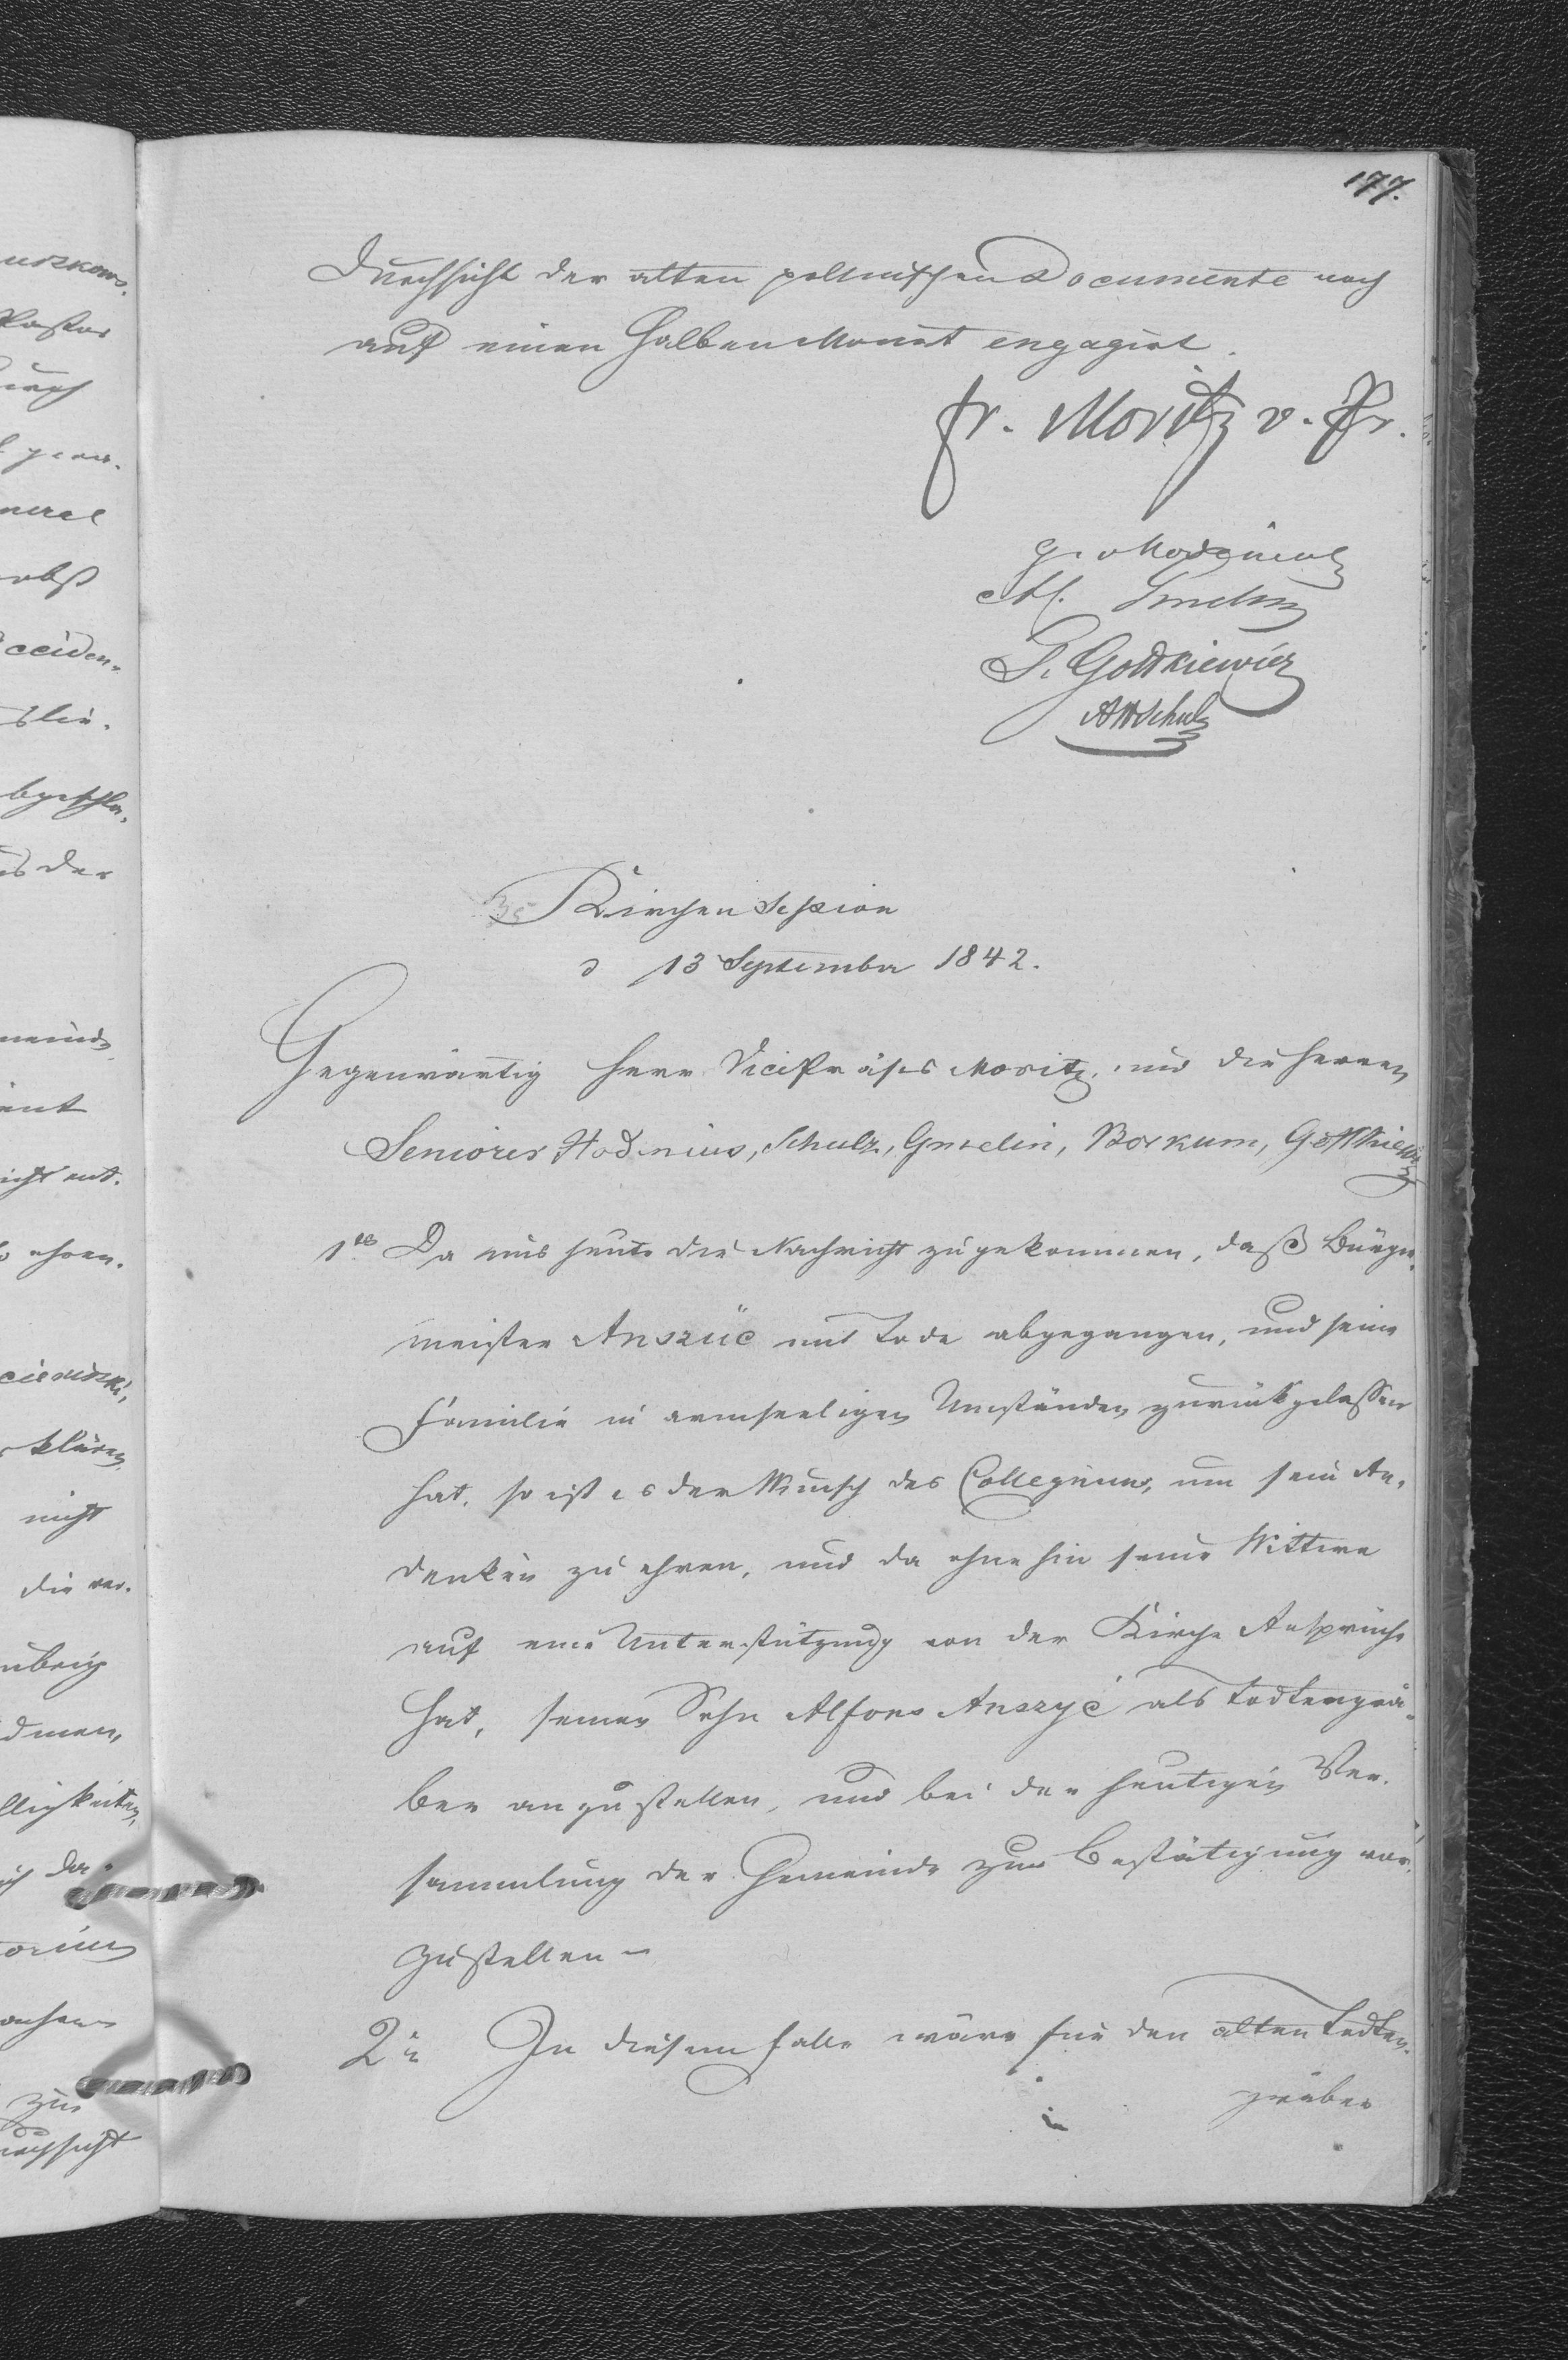 177.
Durchsicht der alten pollnischen Documente noch
auf einen halben Monat engagirt.
fr. Moritz v. Pr.
M. Gmelin
G. Gottkiewicz
AWSchulz
Kirchen Session
d 13 September 1842.
Gegenwärtig Herr VicePräses Moritz, und die Herren
Seniores Hodenius, Schulz, Gmelin, Borkum, Gottkiewicz
1tes Da uns heute die Nachricht zugekommen, daß Bürger-
meister Anszüć mit Tode abgegangen, und seine
Familie in armseeligen Umständen zurückgelassen
hat, so ist es der Wunsch des Collegiums, um sein An-
denken zu ehren, und da ohnehin seine Wittwe
auf eine Unterstützung von der Kirche Ansprüche
hat, seinen Sohn Alfons Anszyć als Todtengrä-
ber anzustellen, und bei der heutigen Ver-
sammlung der Gemeinde zur Bestätigung vor-
zustellen
2tes In diesem Falle wäre für den alten Todten-
gräber